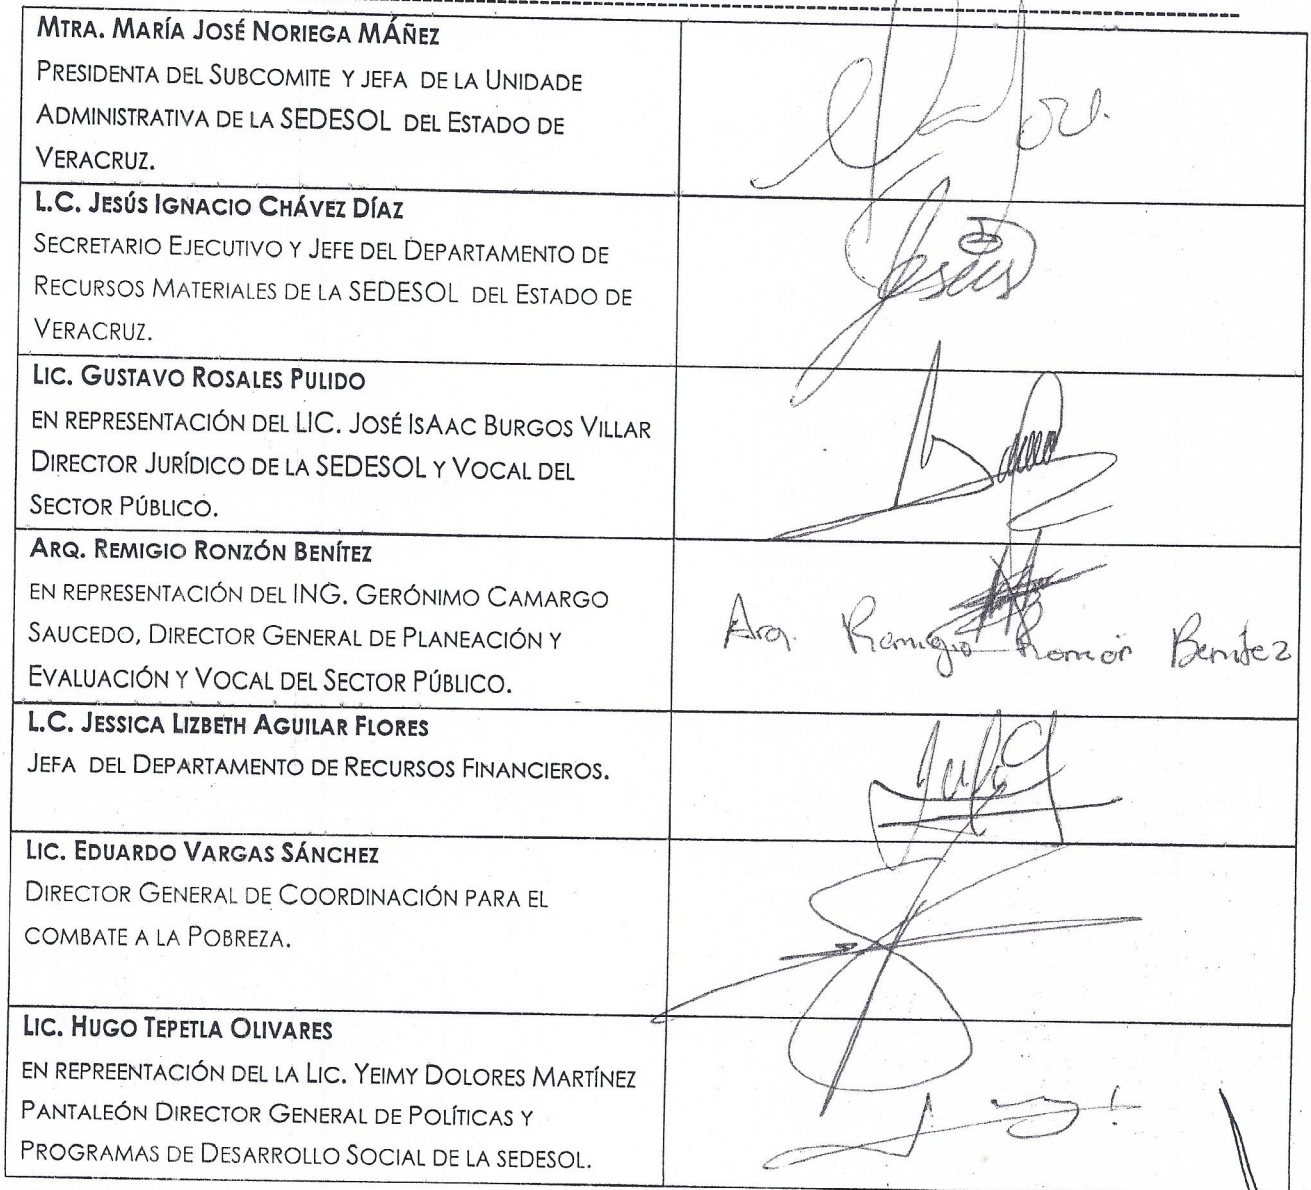 MTRA. MARÍA JOSÉ NORIEGA MÁÑEZ
PRESIDENTA DEL SUBCOMITE Y JEFA DE LA UNIDADE
ADMINISTRATIVA DE LA SEDESOL DEL ESTADO DE
VERACRUZ.
L.C. JESÚS IGNACIO CHÁVEZ DÍAZ
SECRETARIO EJECUTIVO Y JEFE DEL DEPARTAMENTO DE
RECURSOS MATERIALES DE LA SEDESOL DEL ESTADO DE
VERACRUZ.
Jesús
LIC. GUSTAVO ROSALES PULIDO
EN REPRESENTACIÓN DEL LIC. JOSÉ ISAAC BURGOS VILLAR
DIRECTOR JURÍDICO DE LA SEDESOL Y VOCAL DEL
SECTOR PÚBLICO.
ARQ. REMIGIO RONZÓN BENÍTEZ
EN REPRESENTACIÓN DEL ING. GERÓNIMO CAMARGO
SAUCEDO, DIRECTOR GENERAL DE PLANEACIÓN Y
EVALUACIÓN Y VOCAL DEL SECTOR PÚBLICO.
Arq. Remigio Ronzón Benítez
L.C. JESSICA LIZBETH AGUILAR FLORES
JEFA DEL DEPARTAMENTO DE RECURSOS FINANCIEROS.
LIC. EDUARDO VARGAS SÁNCHEZ
DIRECTOR GENERAL DE COORDINACIÓN PARA EL
COMBATE A LA POBREZA.
LIC. HUGO TEPETLA OLIVARES
EN REPREENTACIÓN DEL LA LIC. YEIMY DOLORES MARTÍNEZ
PANTALEÓN DIRECTOR GENERAL DE POLÍTICAS Y
PROGRAMAS DE DESARROLLO SOCIAL DE LA SEDESOL.